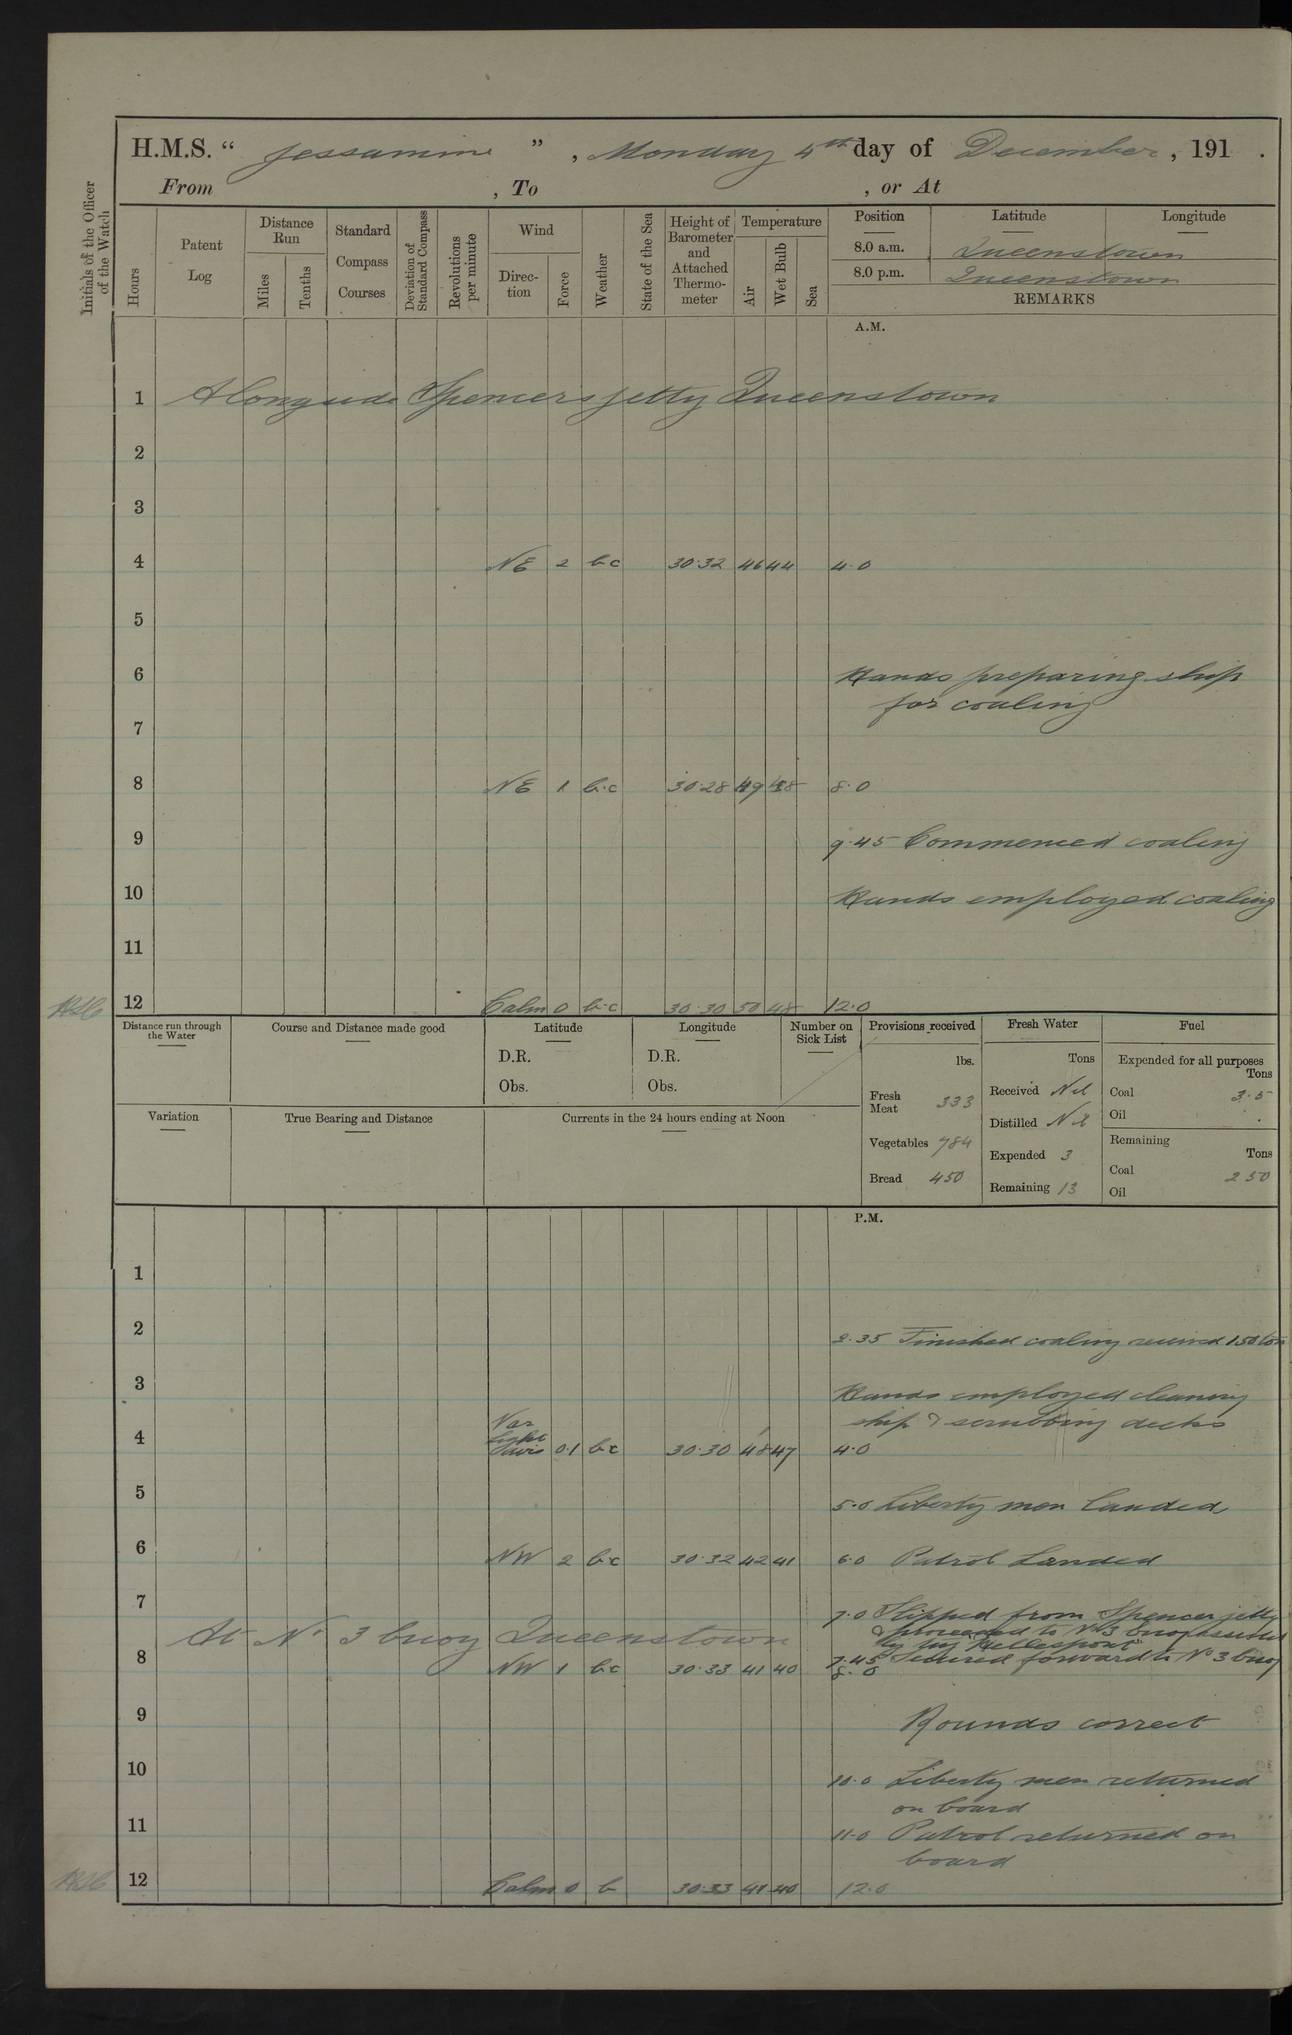 H.M.S. " Jessamine " , Monday 4th day of December , 191 .
From , To , or At
Initials of the Officer of the Watch
Hours
Patent Log
Distance Run
Miles
Tenths
Standard Compass Courses
Deviation of Standard Compass
Revolutions per minute
Wind
Direction
Force
Weather
State of the Sea
Height of Barometer and Attached Thermometer
Temperature
Air
Wet Bulb
Sea
Position Latitude Longitude
8.0 a.m. Queenstown
8.0 p.m. Queenstown
REMARKS
A.M.
1 Alongside Spencers jetty Queenstown
2
3
4 NE 2 b.c 30.32 46 44 4.0
5
6 Hands preparing ship
for coaling
7
8 NE 1 b.c 30.28 49 48 8.0
9 9.45 Commenced coaling
10 Hands employed coaling
11
12 Calm 0 b.c 30.30 50 48 12.0
Distance run through the Water
Course and Distance made good
Latitude
D.R.
Obs.
Longitude
D.R.
Obs.
Number on Sick List
Provisions received
lbs.
Fresh Meat 333
Vegetables 784
Bread 450
Fresh Water
Tons
Received Nil
Distilled Nil
Expended 3
Remaining 13
Fuel
Expended for all purposes
Tons
Coal 3.5
Oil .
Remaining
Tons
Coal 250
Oil
Variation
True Bearing and Distance
Currents in the 24 hours ending at Noon
P.M.
1
2 2.35 Finished coaling received 150 tons
3 Hands employed cleaning
ship & scrubbing decks
4 Var Light Airs 0.1 b.c 30.30 48 47 4.0
5 5.0 Liberty men landed
6 NW 2 b.c 30.32 42 41 6.0 Patrol Landed
7 7.0 Slipped from Spencer jetty
& proceeded to No 3 buoy assisted
by tug "Hellespont"
At No 3 buoy Queenstown
7.45 Secured forward to No 3 buoy
8 NW 1 b.c 30.33 41 40 8.0
9 Rounds correct
10 10.0 Liberty men returned
on board
11 11.0 Patrol returned on
board
12 Calm 0 b 30.33 41 40 12.0